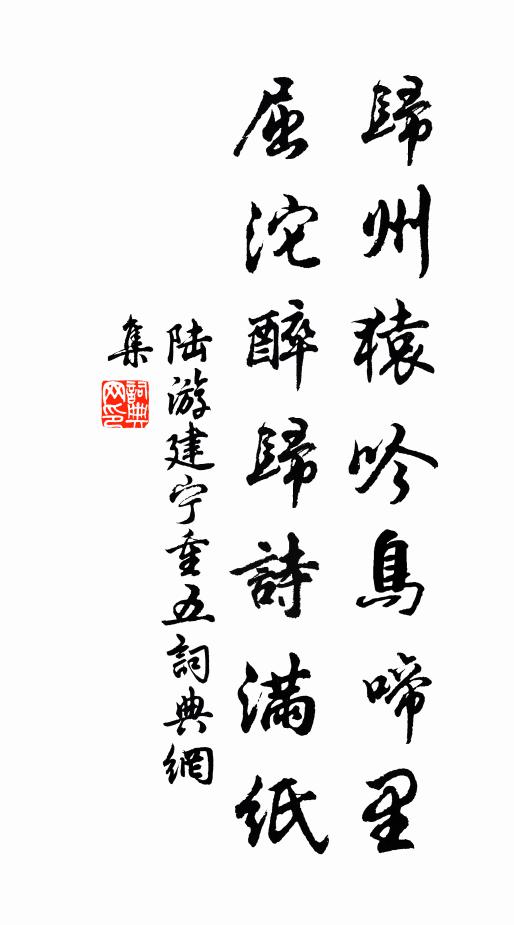 歸州猿吟鳥啼里
屈沱醉歸詩滿紙
陆游建宁重五詞典網
集
詞典
网印